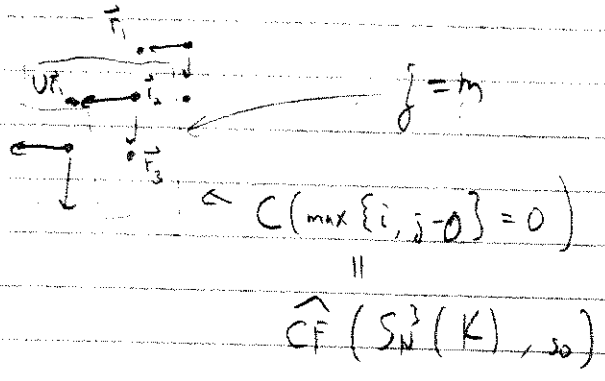 r⃗₁
Ur⃗₁ r⃗₂ j = m
r⃗₃
C(max{i, j-0} = 0)
||
ĈF(S³_N(K), s₀)